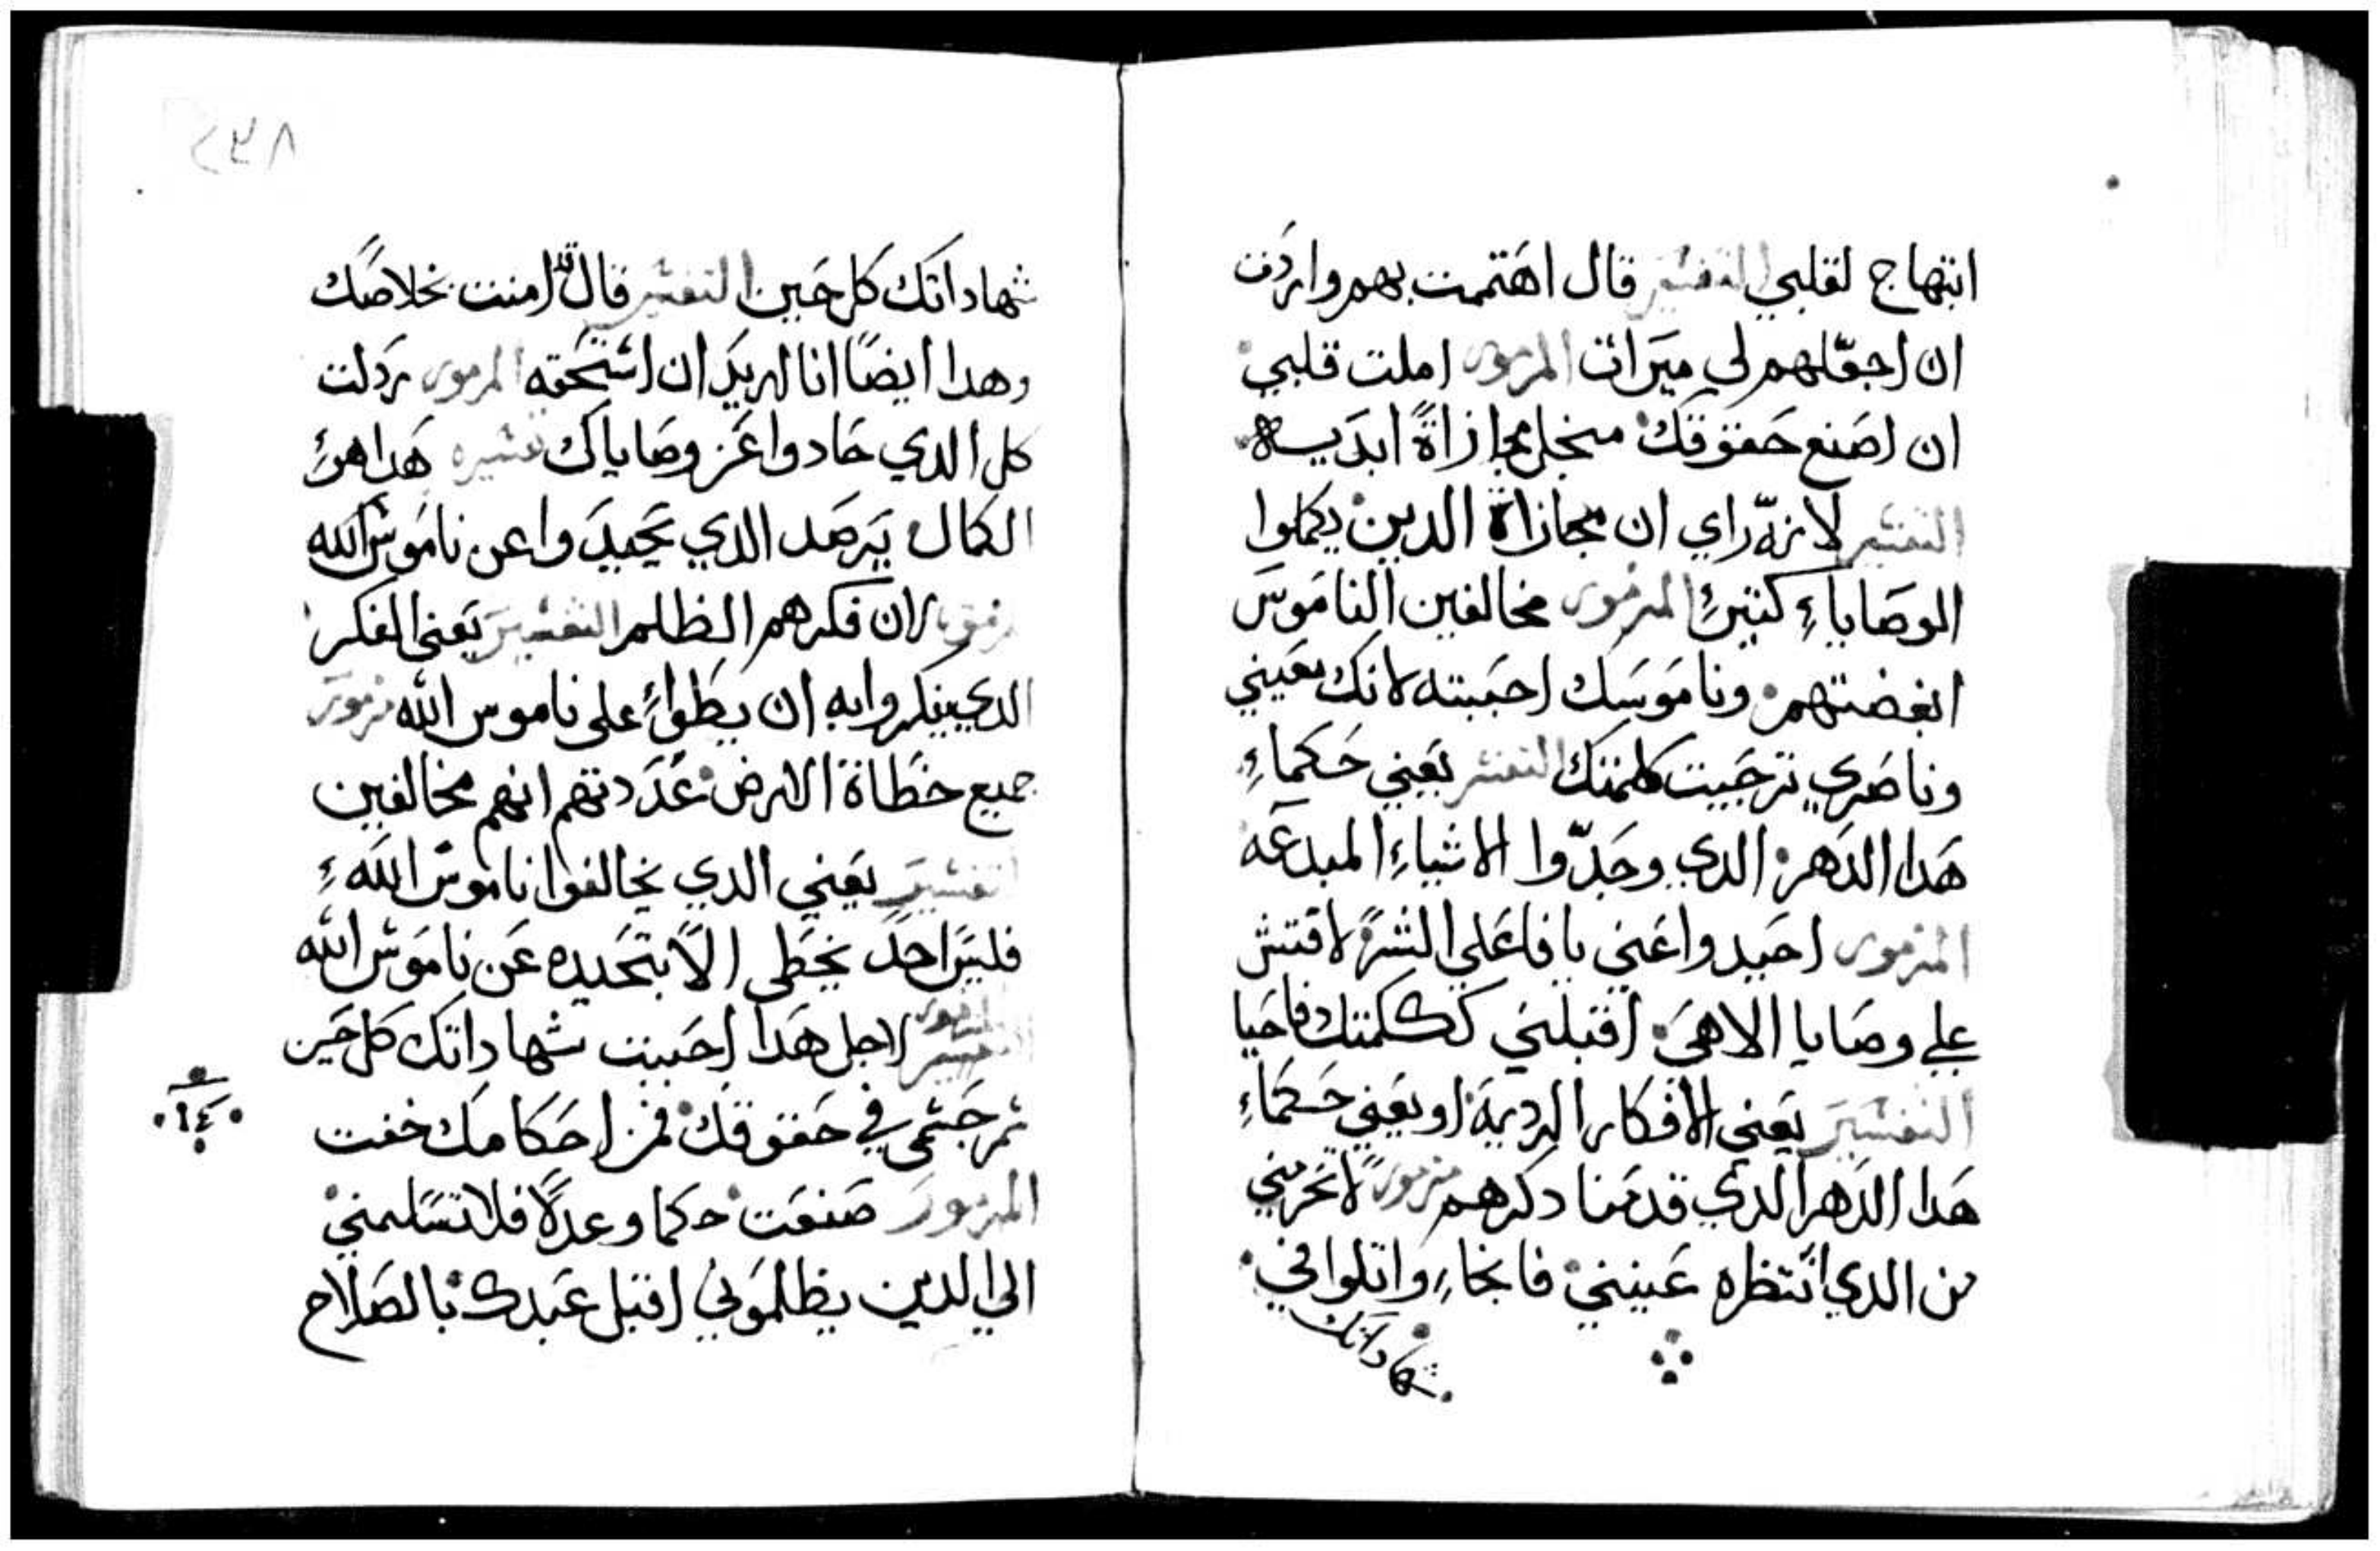 ابتهاج لقلبي التفسير قال اهتممت بهم واردت
ان اجعلهم لي ميرات المزمور املت قلبي
ان اصنع حقوقك منجل مجازاة ابديه
التفسير لانه راي ان مجازاة الدين يكملوا
الوصاياء كتيرء المزمور مخالفين الناموس
ابغضتهم وناموسك احببته لانك معيني
وناصري ترجيت كلمتك التفسير يعني حكماء
هدا الدهر الدي وجدوا الاشياء المبدعه
المزمور احيدوا عني يا فاعلي الشر لافتش
علي وصايا الاهي اقبلني ككلمتك فاحيا
التفسير يعني الافكار الرديه او يعني حكماء
هدا الدهر الدي قدمنا دكرهم مزمور لا تخزيني
من الدي انتظره عينيني فانجاء واتلوا في
شهاداتك
٢٣٨
شهاداتك كل حين التفسير قال امنت بخلاصك
وهدا ايضا انا اريد ان استحقه المزمور ردلت
كل الدي حادوا عن وصاياك تفسيره هدا هو
الكمال يرصد الدي يحيدوا عن ناموس الله
مزمور لان فكرهم الظلم التفسير يعني الفكر
الدي يفكروا به ان يطوا على ناموس الله مزمور
جميع خطاة الارض عددتهم انهم مخالفين
تفسير يعني الدي يخالفوا ناموس الله
فليس احد يخطي الا بتحديده عن ناموس الله
المزمور لاجل هدا احببت شهاداتك كل حين
سمر جسمي في حقوقك فمن احكامك خفت
١٤
المزمور صنعت حكما وعدلا فلا تسلمني
الي الدين يظلموني اقبل عبدك بالصلاح